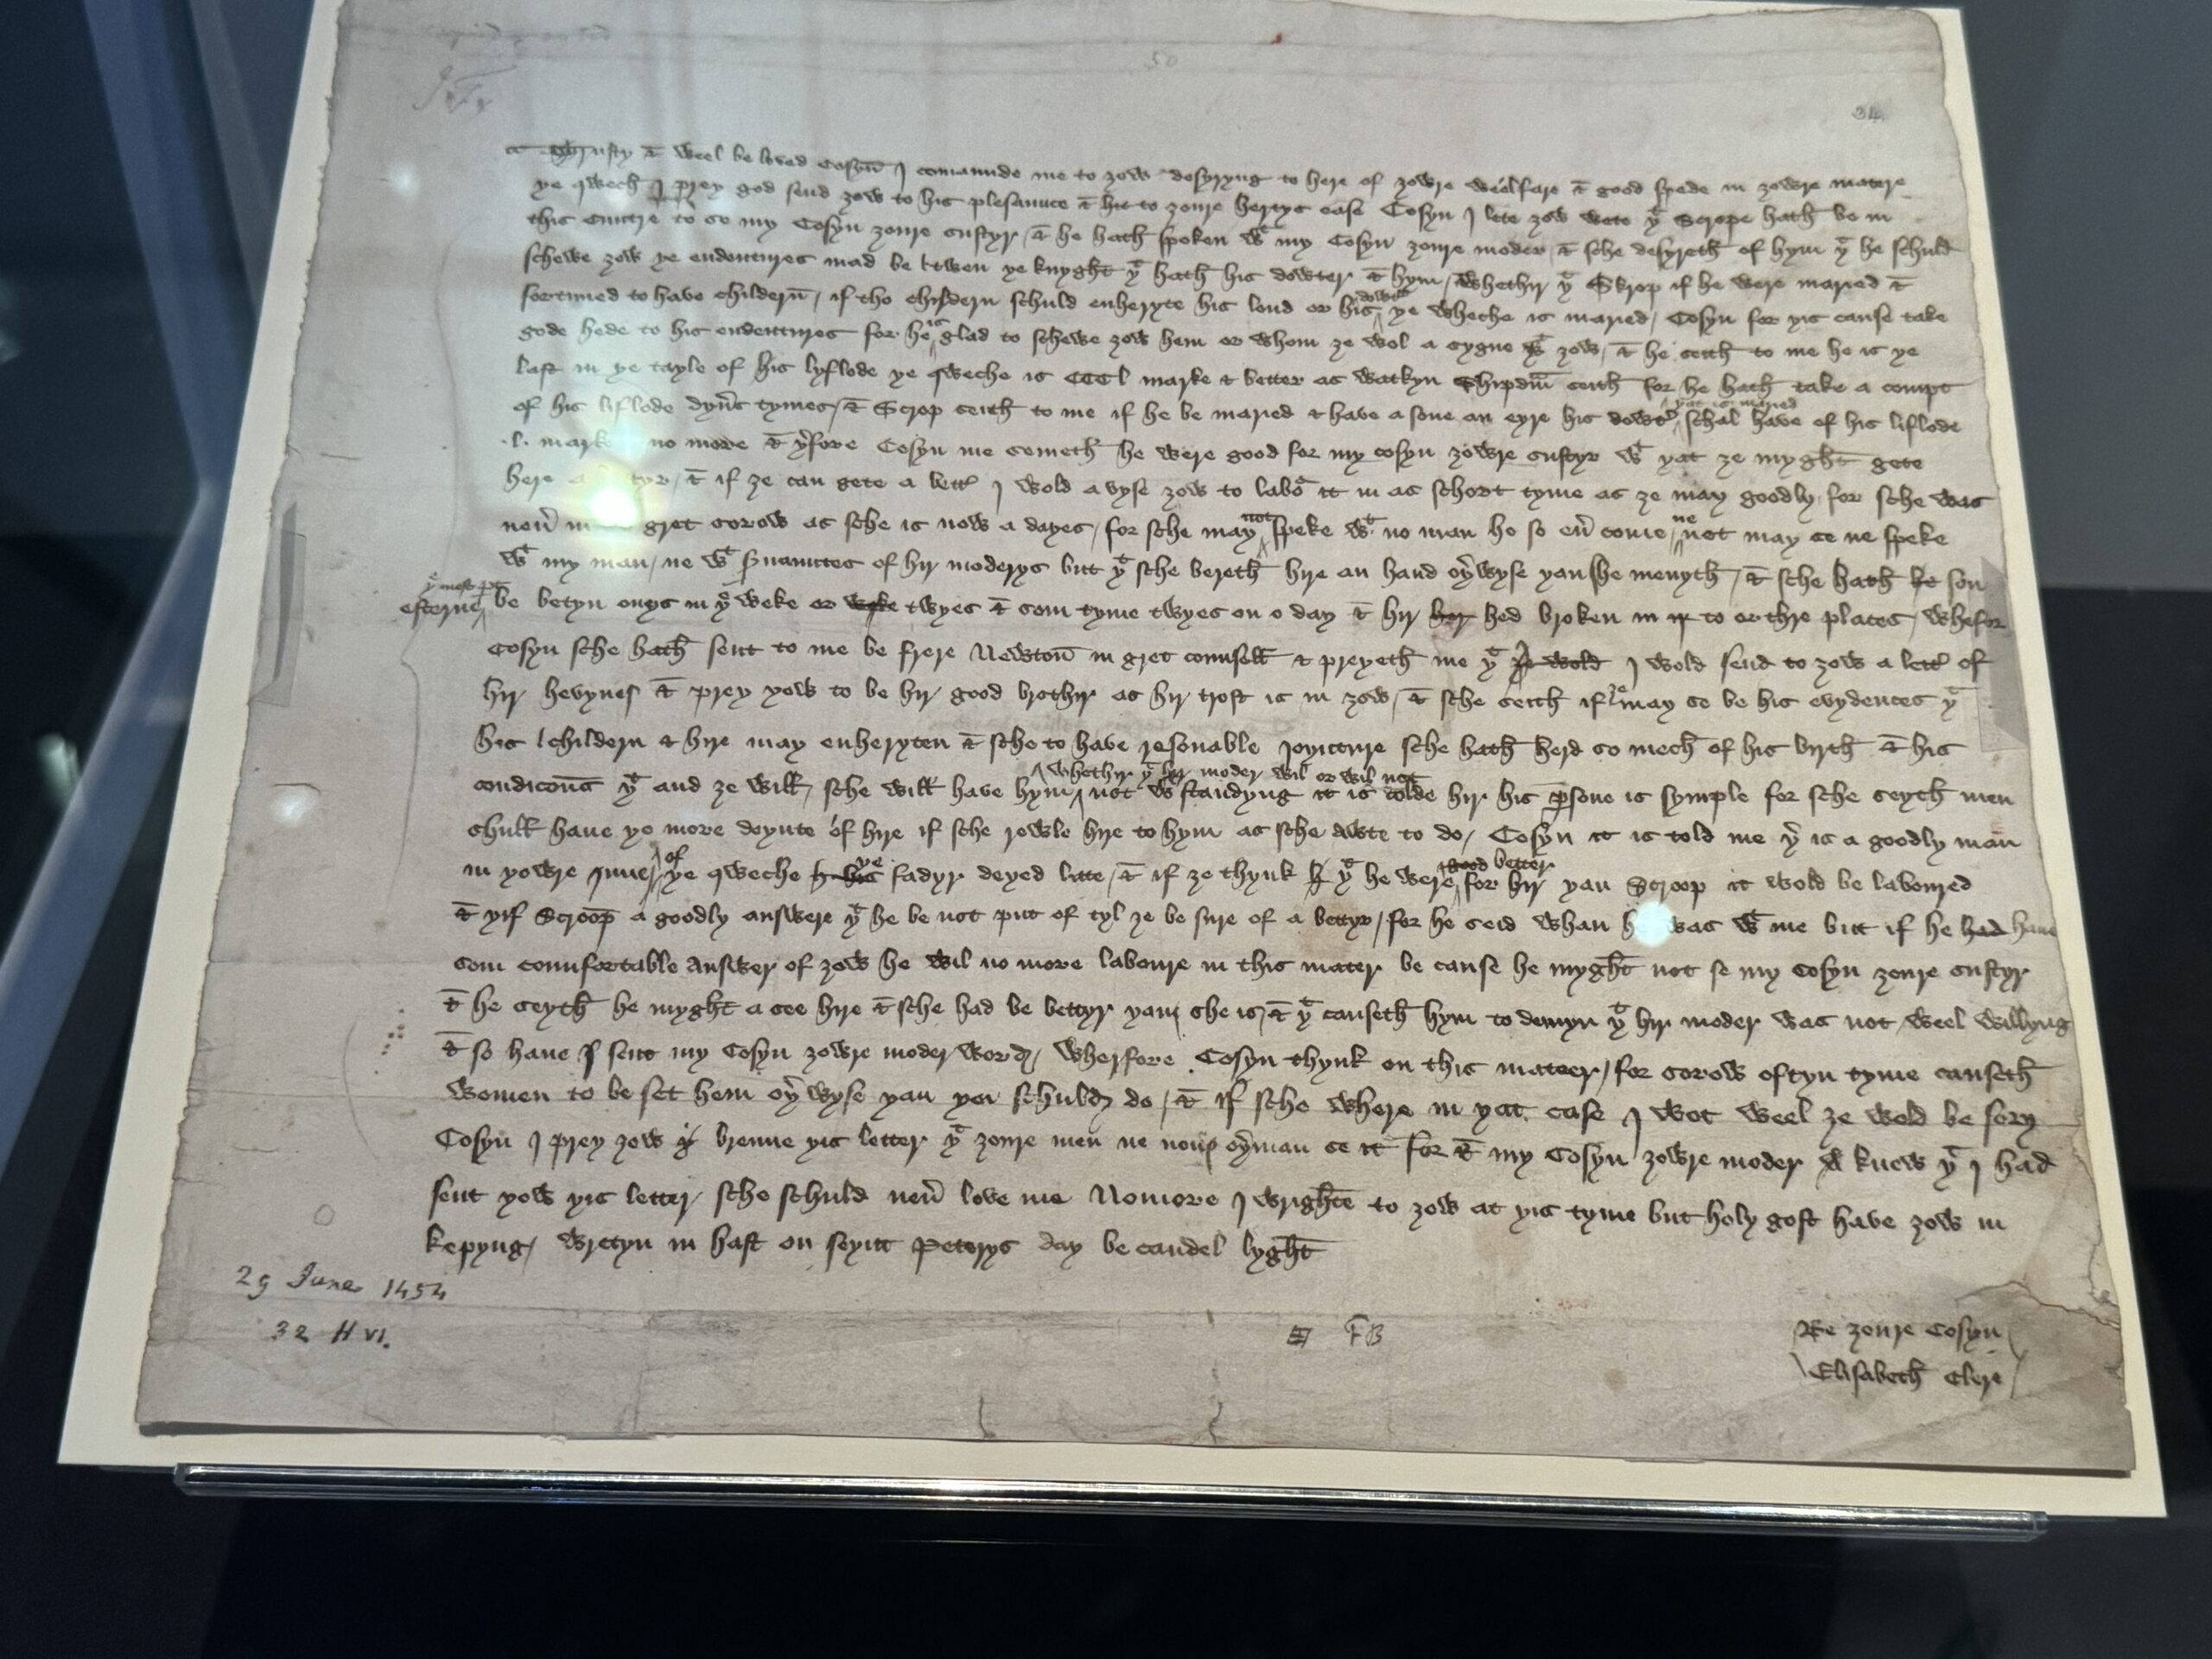 34
Trusty & weel be loved Cosyn I comaunde me to zow desyryng to here of zowre weelfare & good spede in zowre matere
ye qwech I prey god send zow to his plesaunce & to zoure hertys ease Cosyn I lete zow wete yt Scrope hath be in
this cuntre to se my Cosyn zoure sustyr, & he hath spoken wt my Cosyn zoure moder, & sche desyreth of hym yt he schuld
schewe zow ye endentures mad be twen ye knyght yt hath his dowter & hym, whethir yt Skrop if he were maried &
fortuned to have childern, if tho childern schuld enheryte his lond or his dowter ye wheche is maried, Cosyn for yis cause take
gode hede to his endentures for he is glad to schewe zow hem or whom ze wol a sygne wt zow, & he seith to me he is ye
last in ye tayle of his lyflode ye qweche is CCCl marke & better as Watkyn Shipdam seith for he hath take a compt
of his liflode dyuers tymes, & Scrop seith to me if he be maried & have a sone an eyre his dowter yat is maried schal have of his liflode
.l. marke no more & yerfore Cosyn me semeth he were good for my cosyn zowre sustyr wt yat ze myght gete
here a bettyr, & if ze can gete a better I wold avyse zow to labor it in as schort tyme as ze may goodly, for sche was
neuer in gret sorow as sche is now a dayes, for sche may not speke wt no man ho so euer come, ne not may se ne speke
wt my man, ne wt seruauntes of hir moderys but yt sche bereth hire an hand oyerwyse yan she menyth, & sche hath son
esterne ye most part be betyn onys in ye weke or twyes & som tyme twyes on o day & hir hed broken in to or thre places, wherfor
Cosyn sche hath sent to me be frere Newton in gret counsell & preyeth me yt I wold send to zow a letter of
hir hevynes & prey yow to be hir good brothir as hir trost is in zow, & sche seith if ze may se be his evydences yt
his childern & hire may enheryten & sche to have resonable joynture sche hath herd so mech of his birth & his
condicons yt and ze will, sche will have hym whethir yt hir moder wil or wil not, not wt standyng it is tolde hir his persone is symple for sche seyth men
shull have ye more deynte of hire if sche rewle hire to hym as sche awte to do, Cosyn it is told me yer is a goodly man
in yowre Inne, of ye qweche ye fadyr deyed late, & if ze thynk yt he were better for hir yan Scroop it wold be laboured
& yif Scroop a goodly answere yt he be not put of tyl ze be sure of a bettyr, for he seid whan he was wt me but if he have
som counfortable answer of zow he wil no more laboure in this mater be cause he myght not se my Cosyn zoure sustyr
& he seyth he myght a see hire & sche had be bettyr yan she is, & yt causeth hym to demyn yt hir moder was not weel willyng
& so have I sent my Cosyn zowre moder word, wherfore Cosyn thynk on this mateer, for sorow oftyn tyme causeth
women to be set hem oyerwyse yan yei schuld do, & if sche where in yat case I wot weel ze wold be sory
Cosyn I prey zow brenne yis letter yt zoure men ne noun oyer man se it for & my Cosyn zowre moder knew yt I had
sent yow yis letter, sche schuld neuer love me No more I wrighte to zow at yis tyme but holy gost have zow in
kepyng, wretyn in hast on seynt Peterys day be candel lyght
29 June 1454
32 H VI.
FB
Be zoure Cosyn
Elisabeth Clere